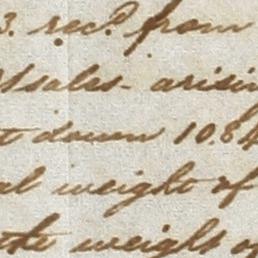 3. rec.d from
sales - arisin
t down 10.84
al weight of
the weight o